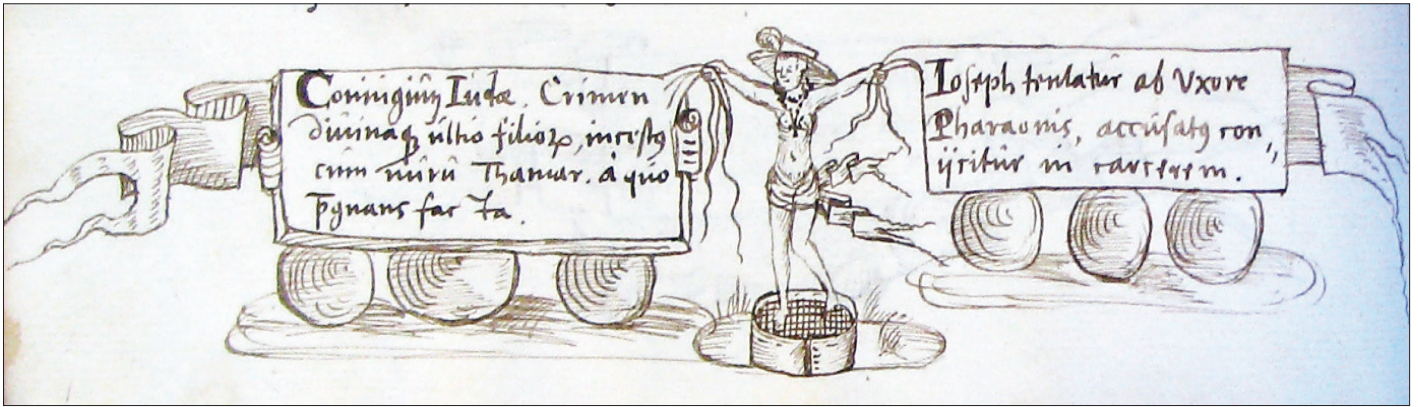 Coniugiũ Iudæ. Crimen
diuinaq; ultio filioꝝ, incestꝰ
cum nurũ Thamar. à quo
p̃gnans fac ta.
Ioseph tentatur ab Vxore
Pharaonis, accusatꝰ con„
ijcitur in carcerem.